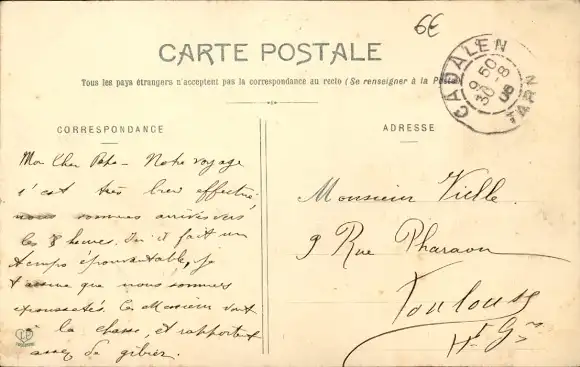 6E
CARTE POSTALE
Tous les pays étrangers n'acceptent pas la correspondance au recto (Se renseigner à la Poste)
CADALEN
9 50
30 -8
06
TARN
CORRESPONDANCE
Mon Cher Papa - Notre voyage
s'est très bien effectué,
nous sommes arrivés vers
les 8 heures. Ici il fait un
temps épouvantable, je
t'assure que nous sommes
époussetés. Ces Messieurs vont
à la chasse, et rapportent
assez de gibier.
ADRESSE
Monsieur Vielle.
9 Rue Pharaon
Toulouse
Hte Gne